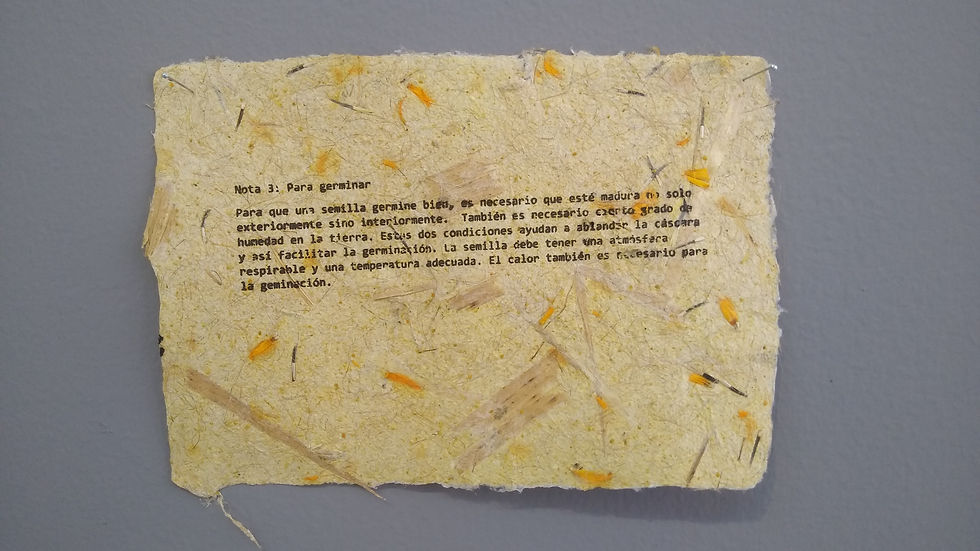 Nota 3: Para germinar
Para que una semilla germine bien, es necesario que esté madura no solo
exteriormente sino interiormente. También es necesario cierto grado de
humedad en la tierra. Estas dos condiciones ayudan a ablandar la cáscara
y así facilitar la germinación. La semilla debe tener una atmósfera
respirable y una temperatura adecuada. El calor también es necesario para
la geminación.